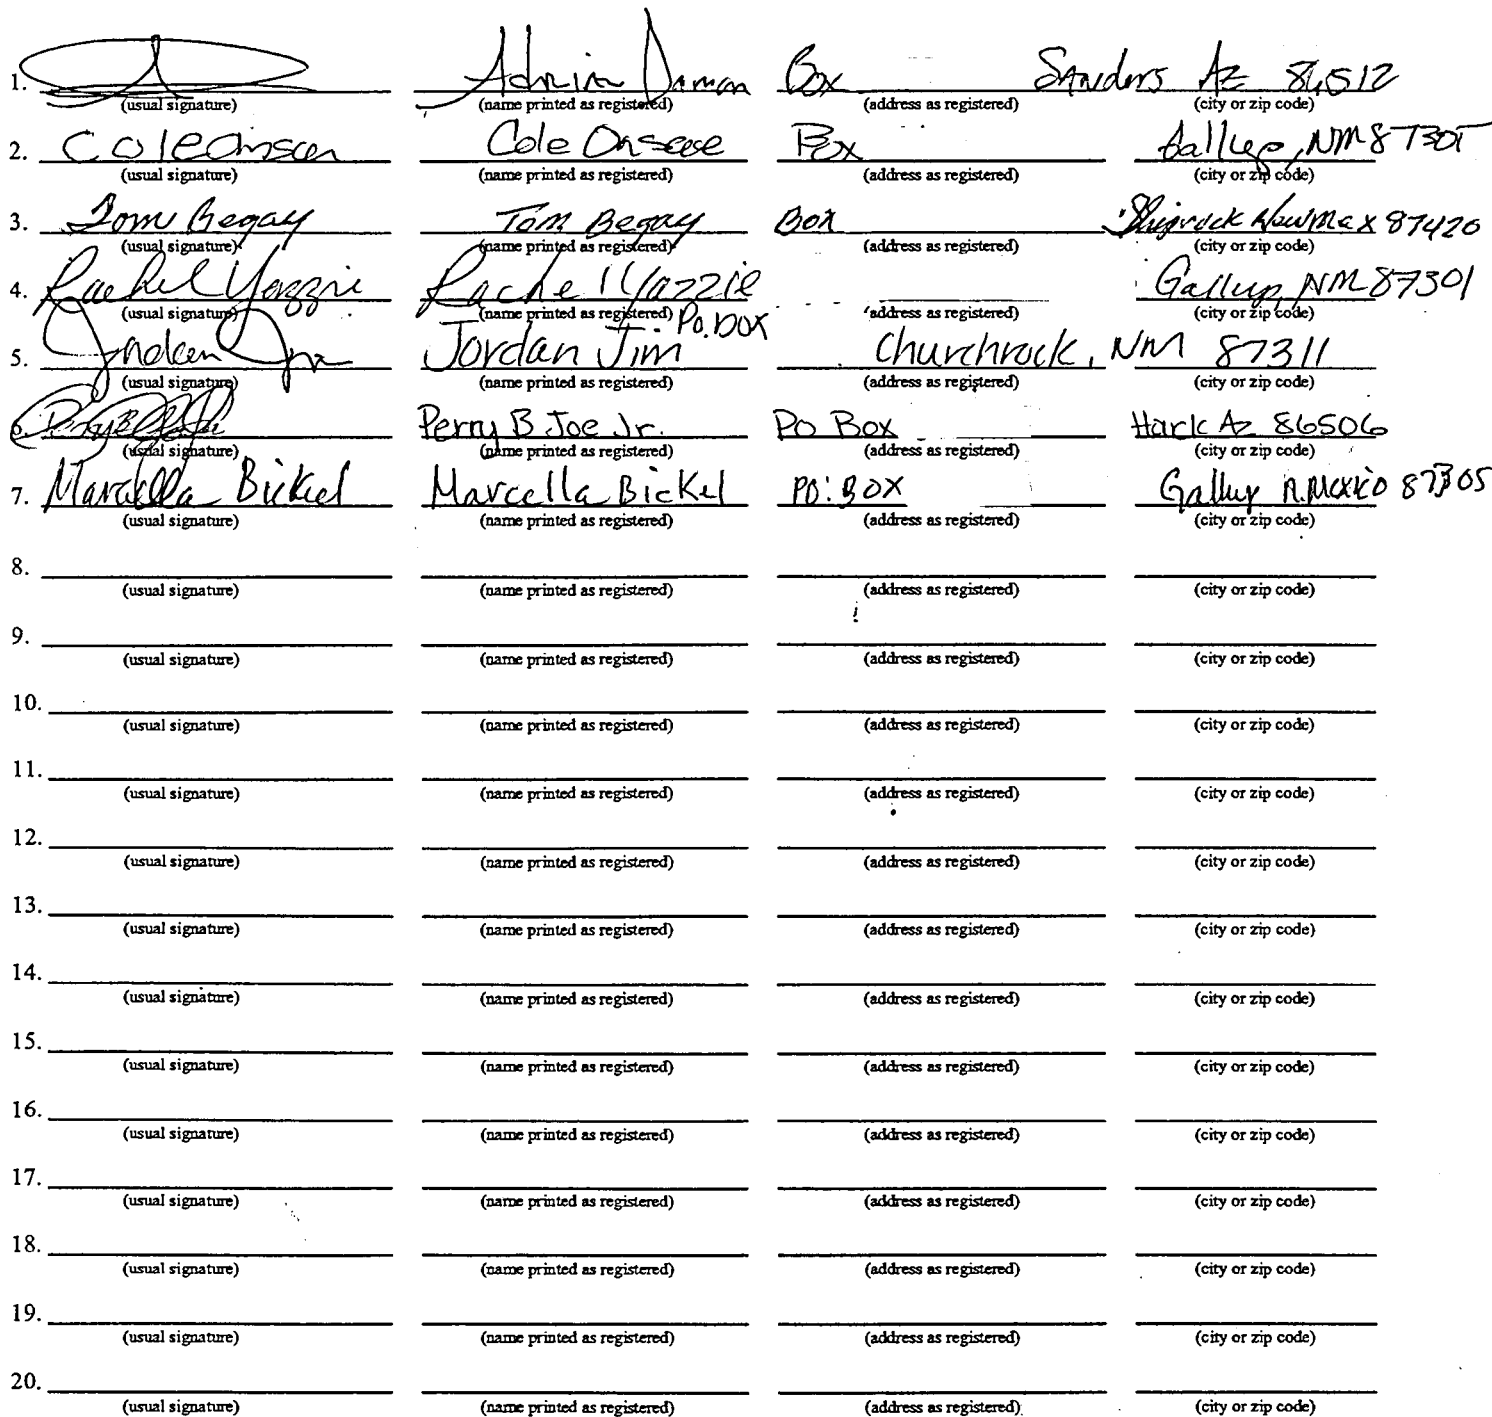 1. Adrian Damon Box Sanders Az 86512
(usual signature) (name printed as registered) (address as registered) (city or zip code)
2. Cole Box Gallup, NM 87305
(usual signature) (name printed as registered) (address as registered) (city or zip code)
3. Tom Begay Tom Begay Box Shiprock New Mex 87420
(usual signature) (name printed as registered) (address as registered) (city or zip code)
4. Rachel Yazzie Rachel Yazzie Gallup, NM 87301
(usual signature) (name printed as registered) (address as registered) (city or zip code)
5. Jordan Jim P.O. BOX Churchrock, NM 87311
(usual signature) (name printed as registered) (address as registered) (city or zip code)
6. Perry B Joe Jr. PO Box Hück Az 86506
(usual signature) (name printed as registered) (address as registered) (city or zip code)
7. Marcella Bickel Marcella Bickel PO: BOX Gallup N. Mexico 87305
(usual signature) (name printed as registered) (address as registered) (city or zip code)
8.
(usual signature) (name printed as registered) (address as registered) (city or zip code)
9.
(usual signature) (name printed as registered) (address as registered) (city or zip code)
10.
(usual signature) (name printed as registered) (address as registered) (city or zip code)
11.
(usual signature) (name printed as registered) (address as registered) (city or zip code)
12.
(usual signature) (name printed as registered) (address as registered) (city or zip code)
13.
(usual signature) (name printed as registered) (address as registered) (city or zip code)
14.
(usual signature) (name printed as registered) (address as registered) (city or zip code)
15.
(usual signature) (name printed as registered) (address as registered) (city or zip code)
16.
(usual signature) (name printed as registered) (address as registered) (city or zip code)
17.
(usual signature) (name printed as registered) (address as registered) (city or zip code)
18.
(usual signature) (name printed as registered) (address as registered) (city or zip code)
19.
(usual signature) (name printed as registered) (address as registered) (city or zip code)
20.
(usual signature) (name printed as registered) (address as registered) (city or zip code)